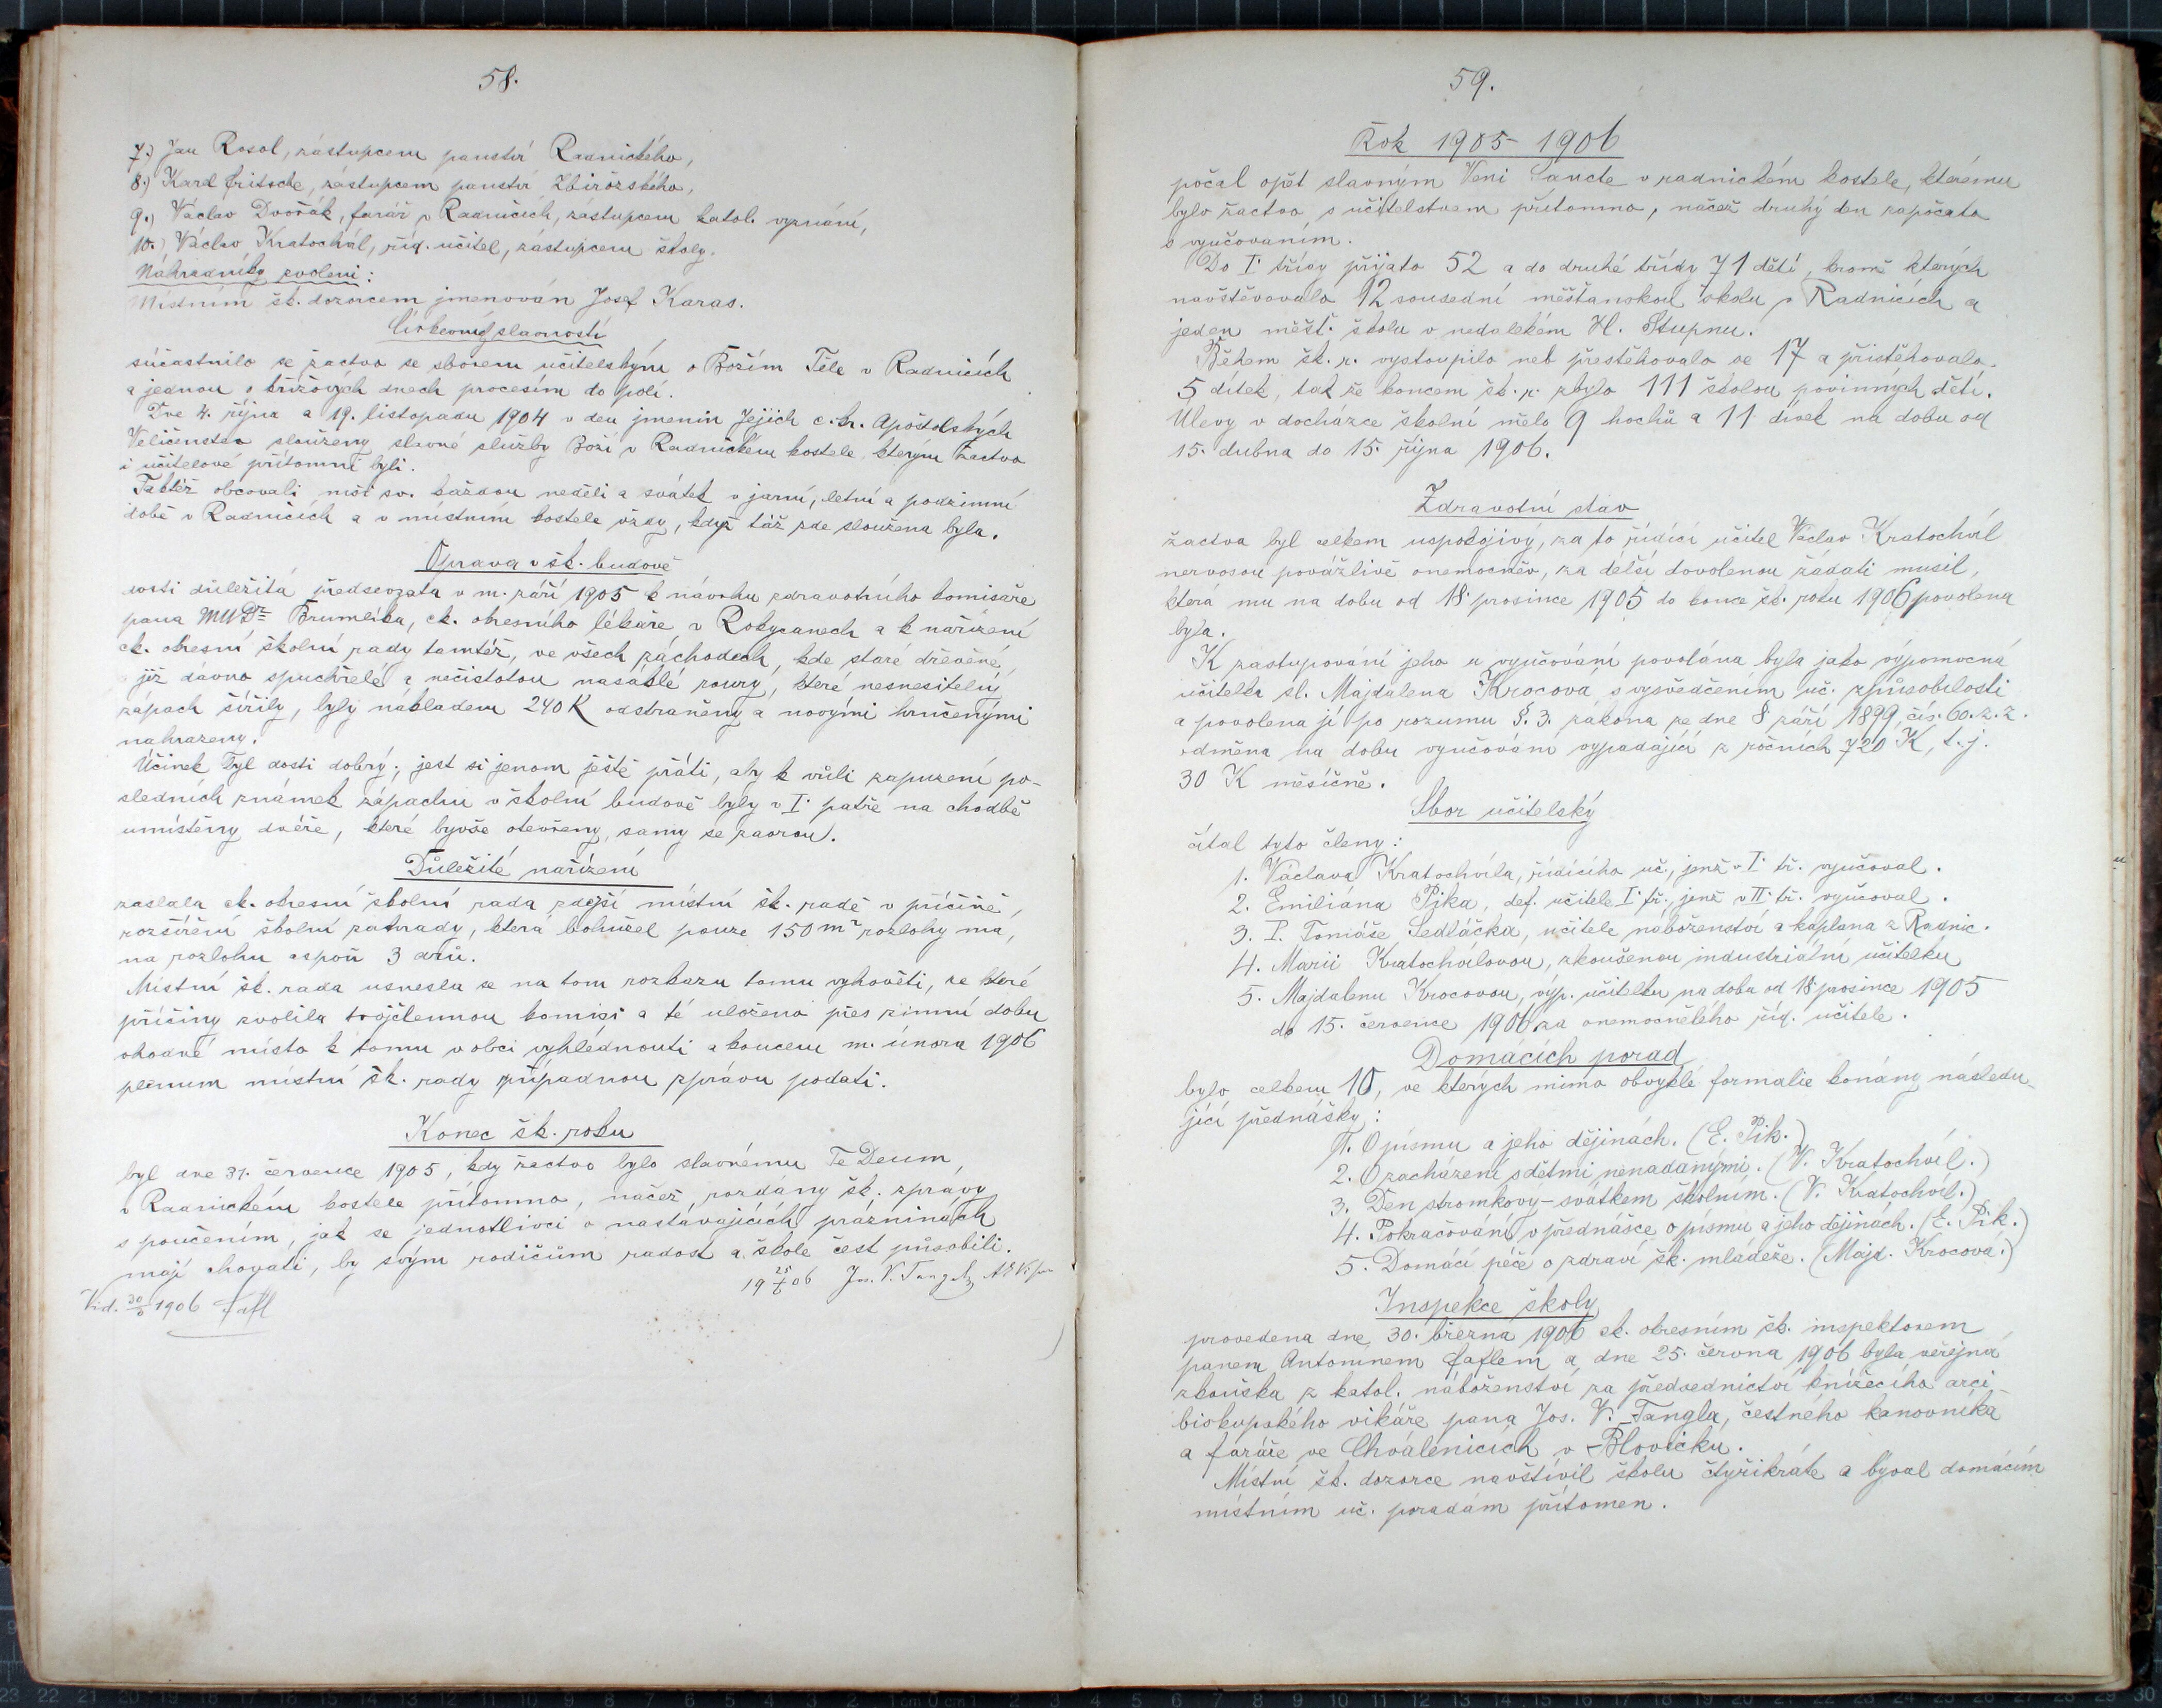 58.
7.) Jan Rosol, zástupcem panství Radnického,
8.) Karel Fritsche, zástupcem panství Zbirožského,
9.) Václav Dvořák, farář v Radnicích, zástupcem katol. vyznání,
10.) Václav Kratochvíl, říd. učitel, zástupcem školy.
Náhradníky zvoleni:
Místním šk. dozorcem jmenován Josef Karas.
Církevní slavnosti
súčastnilo se žactvo se sborem učitelským o Božím Těle v Radnicích
a jednou o křížových dnech procesím do polí.
Dne 4. října a 19. listopadu 1904 v den jmenin Jejich c. k. Apoštolských
Veličenstev slouženy slavné služby Boží v Radnickém kostele, kterým žactvo
i učitelové přítomni byli.
Taktéž obcovali mši sv. každou neděli a svátek v jarní, letní a podzimní
době v Radnicích a v místním kostele vždy, když táž zde sloužena byla.
Oprava v šk. budově
dosti důležitá předsevzata v m. září 1905 k návrhu zdravotního komisaře
pana MUDr Brumlíka, ck. okresního lékaře v Rokycanech a k nařízení
ck. okresní školní rady tamtéž, ve všech záchodech, kde staré dřevěné,
již dávno spuchřelé a nečistotou nasáklé roury, které nesnesitelný
zápach šířily, byly nákladem 240 K odstraněny a novými hručenými
nahrazeny.
Účinek byl dosti dobrý; jest si jenom ještě přáti, aby k vůli zapuzení po-
sledních známek zápachu v školní budově byly v I. patře na chodbě
umístěny dvéře, které byvše otevřeny, samy se zavrou.
Důležité nařízení
zaslala ck. okresní školní rada zdejší místní šk. radě v příčině,
rozšíření školní zahrady, která bohužel pouze 150 m² rozlohy má,
na rozlohu aspoň 3 arů.
Místní šk. rada usnesla se na tom rozkazu tomu vyhověti, ze které
příčiny zvolila trojčlennou komisi a té uloženo přes zimní dobu
vhodné místo k tomu v obci vyhlédnouti a koncem m. února 1906
plenum místní šk. rady případnou zprávu podati.
Konec šk. roku
byl dne 31. července 1905, kdy žactvo bylo slavnému Te Deum,
v Radnickém kostele přítomno, načež rozdány šk. zprávy
s poučením, jak se jednotlivci o nastávajících prázninách
mají chovati, by svým rodičům radost a škole čest působili.
19 25/6 06 Jos. V. Tangl
Vid. 30/3 1906 Fafl
59.
Rok 1905-1906
počal opět slavným Veni Sancte v radnickém kostele, kterému
bylo žactvo s učitelstvem přítomno, načež druhý den započato
s vyučováním.
Do I. třídy přijato 52 a do druhé třídy 71 dětí, kromě kterých
navštěvovalo 12 sousední měšťanskou školu v Radnicích a
jeden měšť. školu v nedalekém H. Stupnu.
Během šk. r. vystoupilo neb přestěhovalo se 17 a přistěhovalo
5 dítek, tak že koncem šk. r. zbylo 111 školou povinných dětí.
Úlevy v docházce školní mělo 9 hochů a 11 dívek na dobu od
15. dubna do 15. října 1906.
Zdravotní stav
žactva byl celkem uspokojivý, za to řídící učitel Václav Kratochvíl
nervosou povážlivě onemocněv, za delší dovolenou žádati musil,
která mu na dobu od 18. prosince 1905 do konce šk. roku 1906 povolena
byla.
K zastupování jeho u vyučování povolána byla jako výpomocná
učitelka sl. Majdalena Krocová s vysvědčením uč. způsobilosti
a povolena jí po rozumu §. 3. zákona ze dne 8 září 1899, čís. 60. z. z.
odměna na dobu vyučování vypadající z ročních 720 K, t. j.
30 K měsíčně.
Sbor učitelský
čítal tyto členy:
1. Václava Kratochvíla, řídícího uč., jenž v I. tř. vyučoval.
2. Emiliána Pika, def. učitele I. tř., jenž v II. tř. vyučoval.
3. P. Tomáše Sedláčka, učitele náboženství a kaplana z Radnic.
4. Marii Kratochvílovou, zkoušenou industriální učitelku
5. Majdalenu Krocovou, výp. učitelku na dobu od 18. prosince 1905
do 15. července 1906 za onemocnělého říd. učitele.
Domácích porad
bylo celkem 10, ve kterých mimo obvyklé formalie konány následu-
jící přednášky:
1. O písmu a jeho dějinách. (E. Pik.)
2. O zacházení s dětmi nenadanými. (V. Kratochvíl.)
3. Den stromkový - svátkem školním. (V. Kratochvíl.)
4. Pokračování v přednášce o písmu a jeho dějinách. (E. Pik.)
5. Domácí péče o zdraví šk. mládeže. (Majd. Krocová.)
Inspekce školy
provedena dne 30. března 1906 ck. okresním šk. inspektorem
panem Antonínem Faflem a dne 25. června 1906 byla veřejná
zkouška z katol. náboženství za předsednictví knížecího arci-
biskupského vikáře pana Jos. V. Tangla, čestného kanovníka
a faráře ve Chválenicích v Blovicku.
Místní šk. dozorce navštívil školu čtyřikráte a býval domácím
místním uč. poradám přítomen.